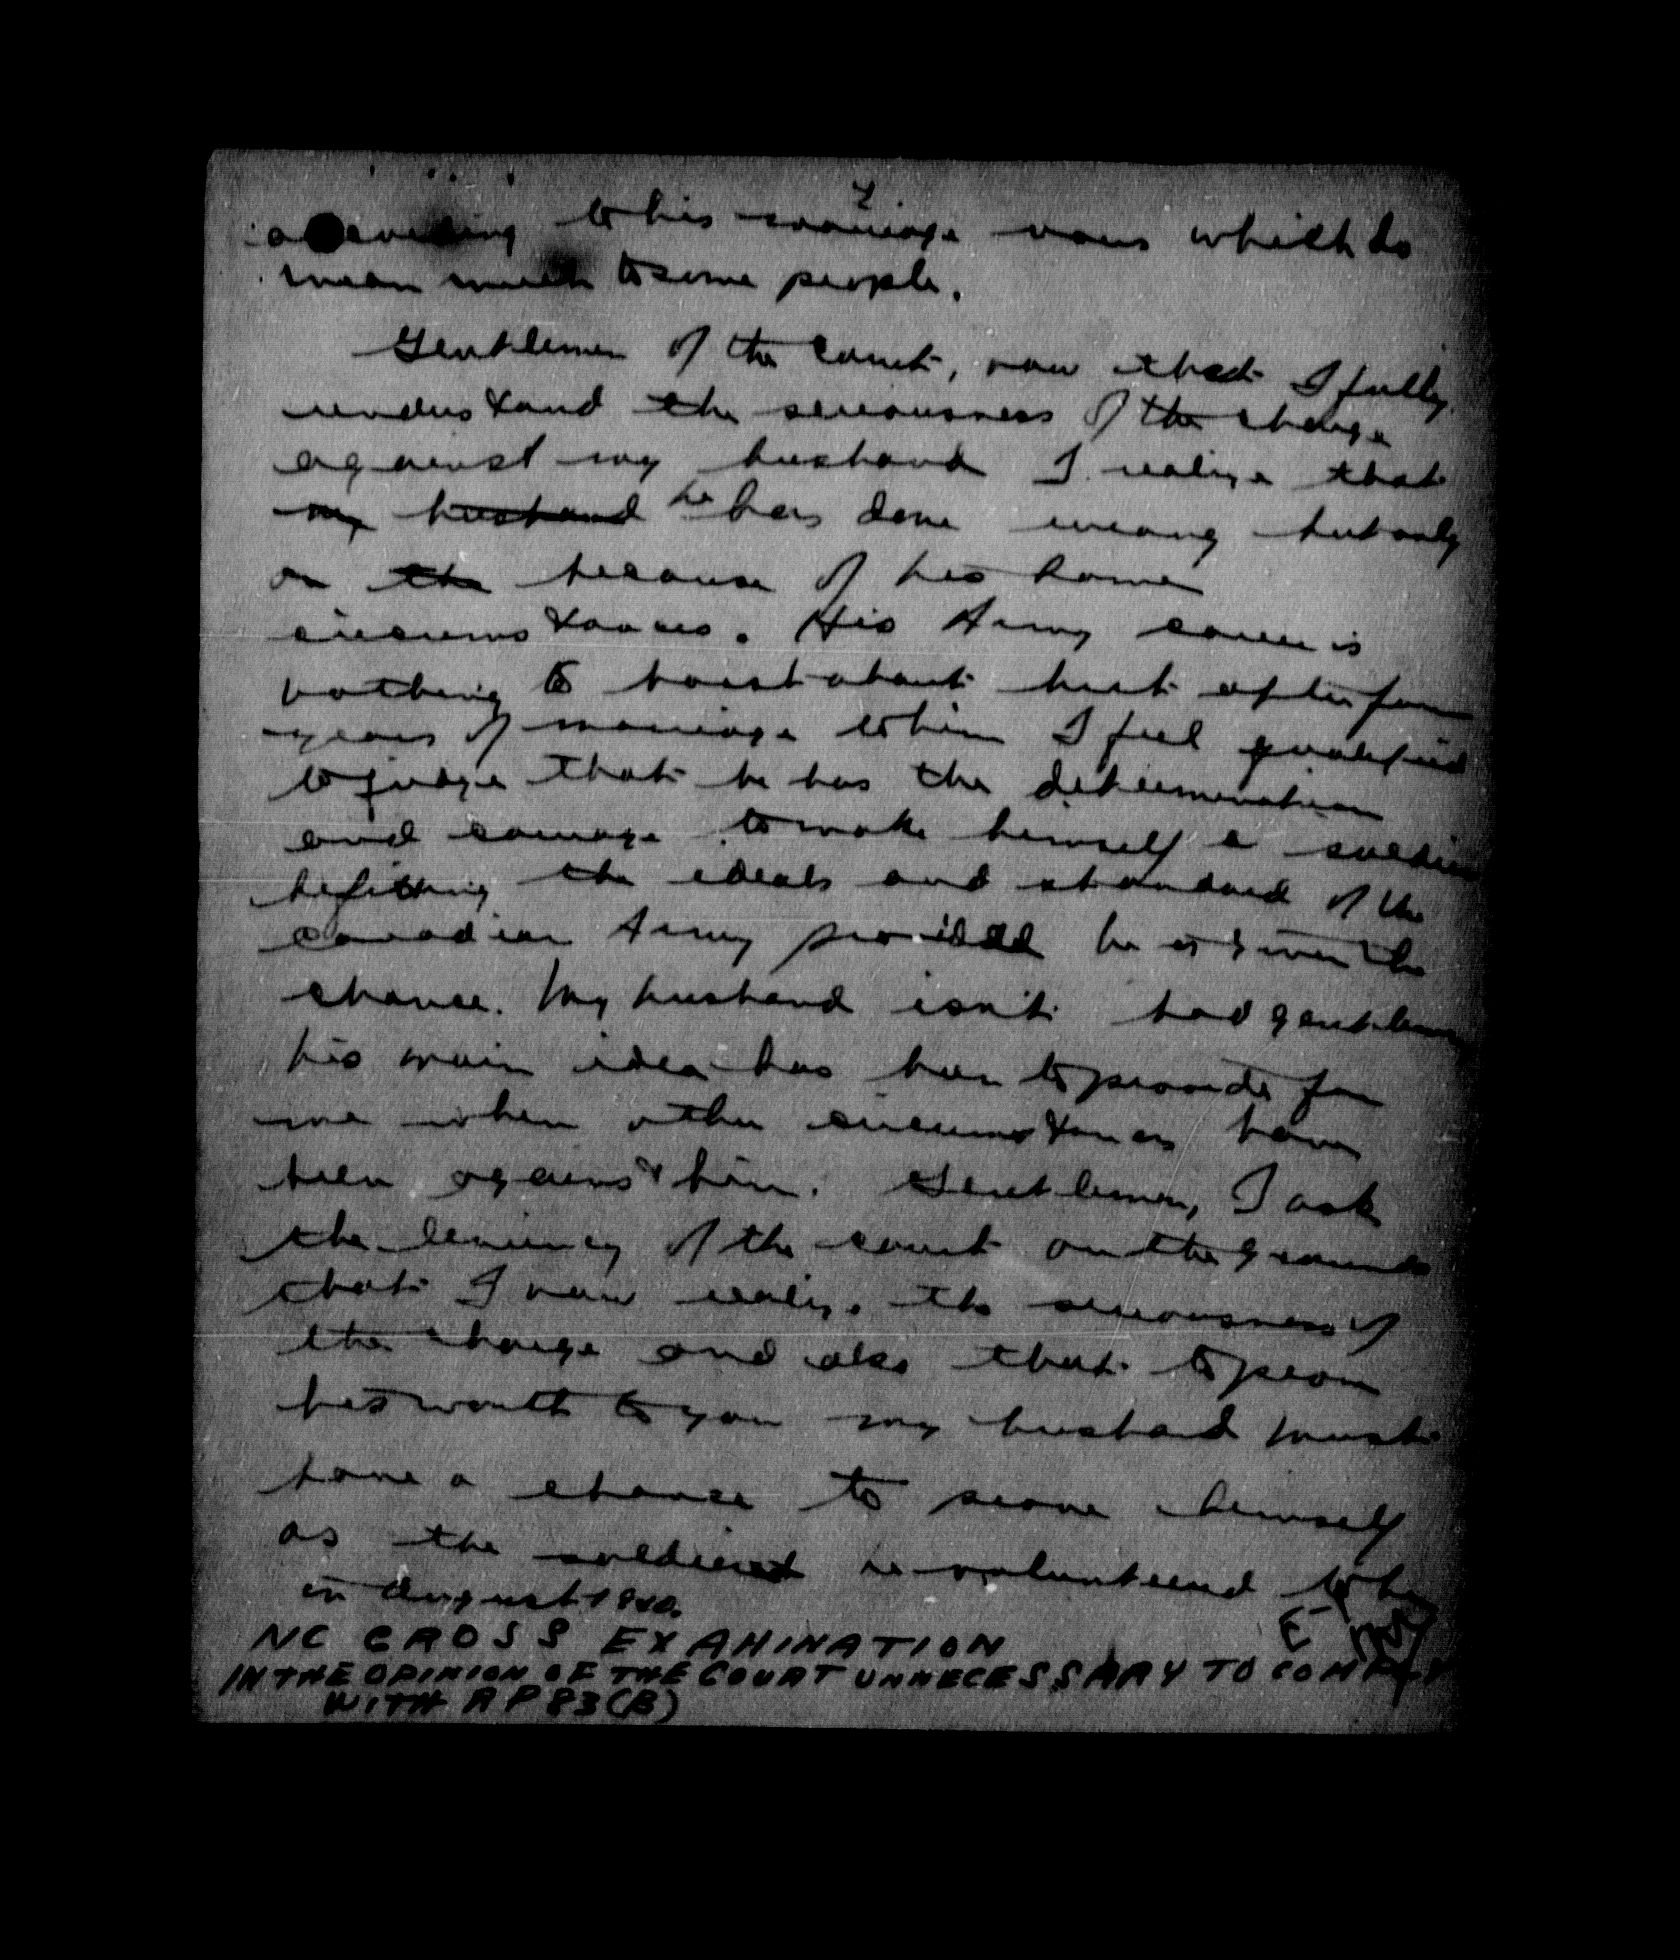 2.
according to his marriage vows which do
mean much to some people.
Gentlemen of the Court, now that I fully
understand the seriousness of the charge
against my husband I realize that
my husband he has done wrong but only
on the because of his home
circumstances. His Army career is
nothing to boast about but after four
years of marriage to him I feel qualified
to judge that he has the determination
and courage to make himself a soldier
befitting the ideals and standard of the
Canadian Army provided he is given the
chance. My husband isn't bad gentlemen
his main idea has been to provide for
me when other circumstances have
been against him. Gentlemen, I ask
the leniency of the court on the grounds
that I now realize the seriousness of
the charge and also that to prove
his worth to you my husband must
have a chance to prove himself
as the soldier he volunteered to be
in August 1940.
NO CROSS EXAMINATION
IN THE OPINION OF THE COURT UNNECESSARY TO COMPLY
WITH RP 83(B)